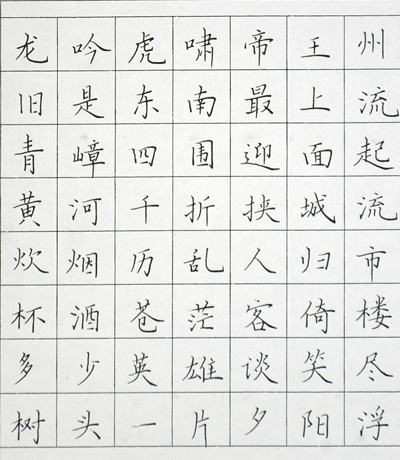 龙吟虎啸帝王州
旧是东南最上流
青嶂四围迎面起
黄河千折挟城流
炊烟历乱人归市
杯酒苍茫客倚楼
多少英雄谈笑尽
树头一片夕阳浮